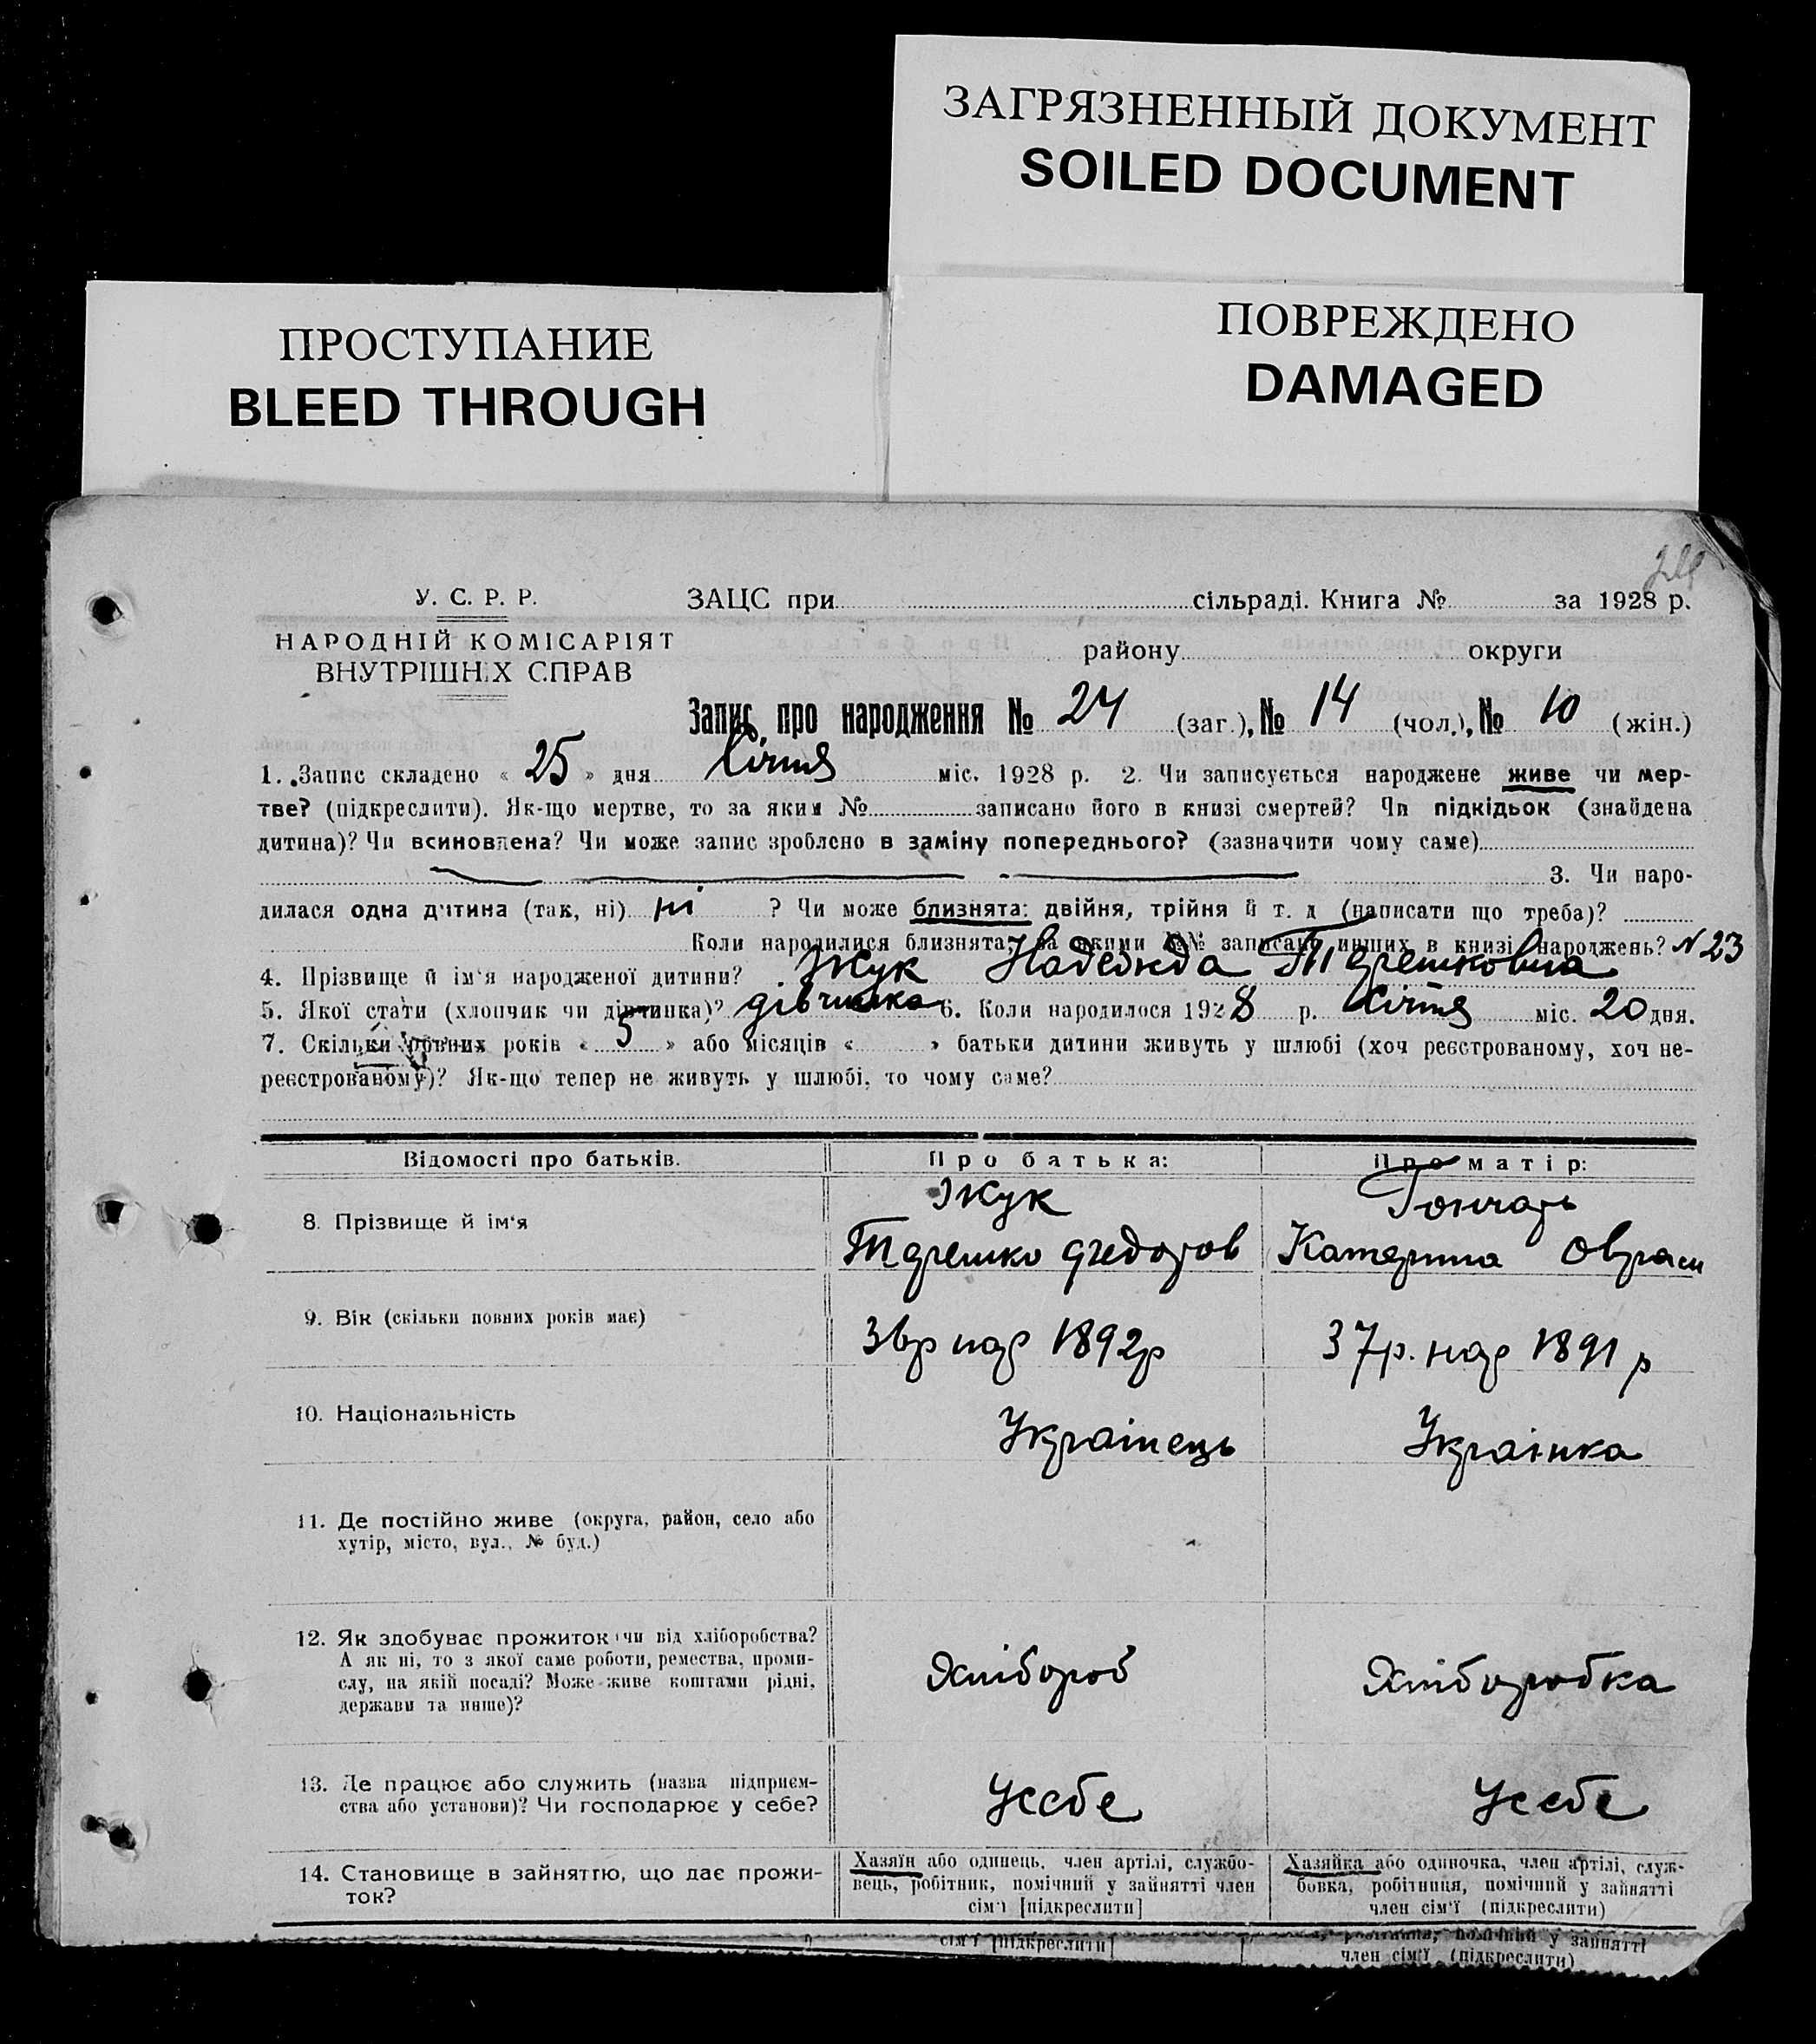 ЗАГРЯЗНЕННЫЙ ДОКУМЕНТ
SOILED DOCUMENT
ПРОСТУПАНИЕ
BLEED THROUGH
ПОВРЕЖДЕНО
DAMAGED
У. С. Р. Р.
НАРОДНІЙ КОМІСАРІЯТ
ВНУТРІШНІХ СПРАВ
ЗАЦС при сільраді. Книга № за 1928 р.
району округи
Запис про народження № 24 (заг.), № 14 (чол.), № 10 (жін.)
1. Запис складено « 25 » дня Січня міс. 1928 р. 2. Чи записується народжене живе чи мер-
тве? (підкреслити). Як-що мертве, то за яким № записано його в книзі смертей? Чи підкідьок (знайдена
дитина)? Чи всиновлена? Чи може запис зроблено в заміну попереднього? (зазначити чому саме)
3. Чи наро-
дилася одна дитина (так, ні) ні ? Чи може близнята: двійня, трійня й т. д (написати що треба)?
Коли народилися близнята, за якими №№ записано инших в книзі народжень? N 23
4. Прізвище й ім'я народженої дитини? Жук Надежда Терешковна
5. Якої стати (хлопчик чи дівчинка)? дівчинка 6. Коли народилося 1928 р. Січня міс. 20 дня.
7. Скільки повних років « 5 » або місяців « » батьки дитини живуть у шлюбі (хоч реєстрованому, хоч не-
реєстрованому)? Як-що тепер не живуть у шлюбі, то чому саме?
Відомості про батьків. Про батька: Про матір:
8. Прізвище й ім'я
Жук
Терешко Федоров
Гончарь
Катерина Оврам
9. Вік (скільки повних років має)
36р нар 1892р
37р. нар 1891 р
10. Національність
Українець
Українка
11. Де постійно живе (округа, район, село або
хутір, місто, вул., № буд.)
12. Як здобуває прожиток чи від хліборобства?
А як ні, то з якої саме роботи, ремества, проми-
слу, на якій посаді? Може живе коштами рідні,
держави та инше)?
Хлібороб
Хліборобка
13. Де працює або служить (назва підприєм-
ства або установи)? Чи господарює у себе?
Усебе
Усебе
14. Становище в зайняттю, що дає прожи-
ток?
Хазяїн або одинець, член артілі, службо-
вець, робітник, помічний у зайнятті член
сім'ї [підкреслити]
Хазяйка або одиночка, член артілі, служ-
бовка, робітниця, помічний у зайнятті
член сім'ї (підкреслити)
сім'ї [підкреслити]
робітниця, помічний у зайнятті
член сім'ї (підкреслити)